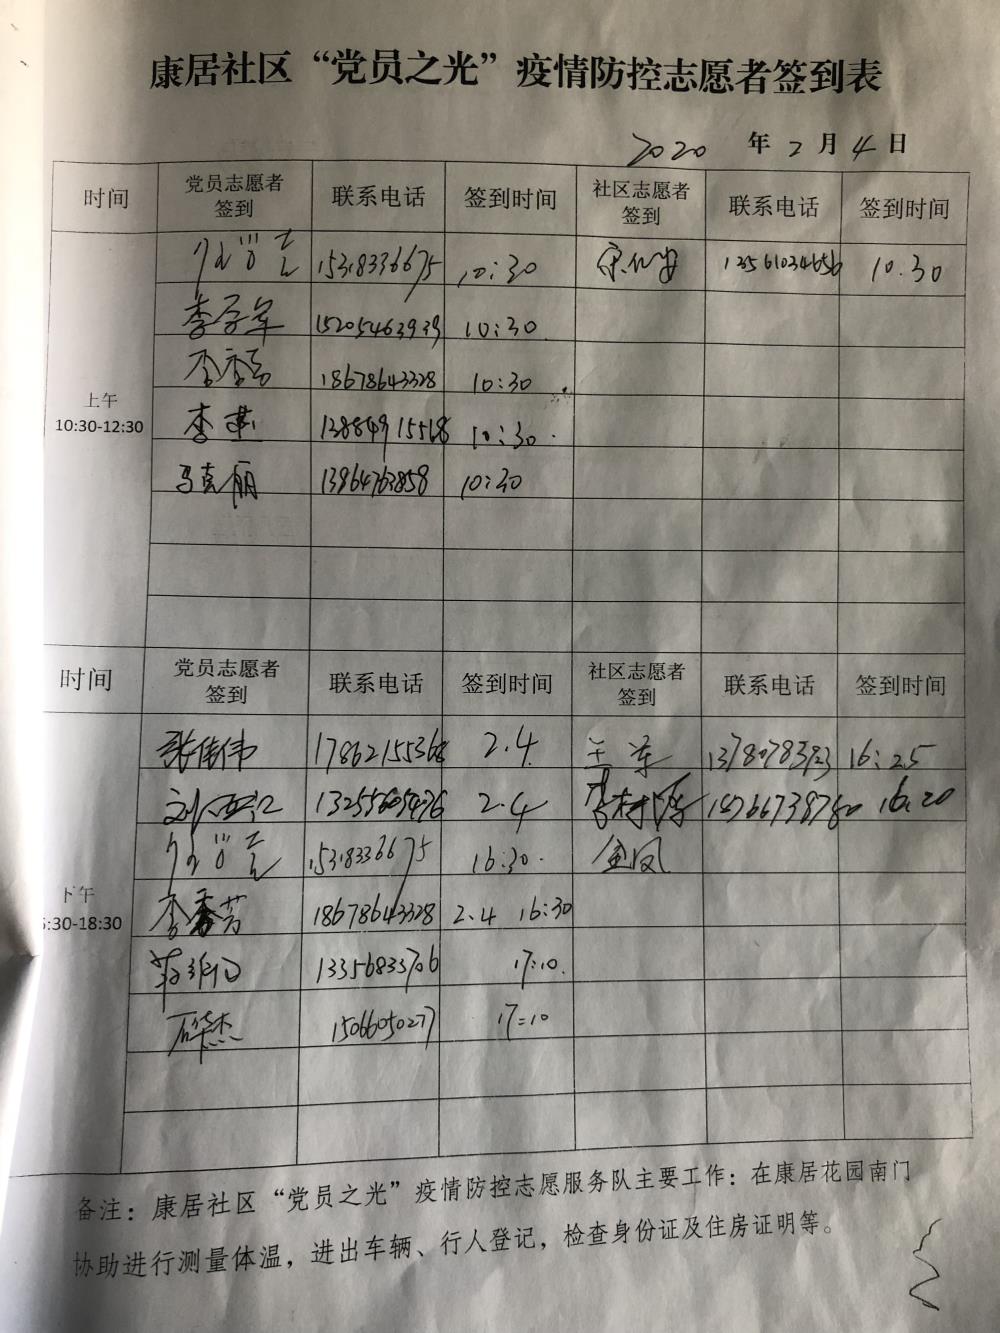 康居社区“党员之光”疫情防控志愿者签到表
2020 年 2 月 4 日
时间 党员志愿者签到 联系电话 签到时间 社区志愿者签到 联系电话 签到时间
上午 10:30-12:30
15318336675 10:30 10.30
李学军 15205463939 10:30
18678643328 10:30
10:30
马克丽 13964763858 10:30
时间 党员志愿者签到 联系电话 签到时间 社区志愿者签到 联系电话 签到时间
下午 :30-18:30
17862155368 2.4 16:25
2.4 16:20
15318336675 16:30. 金凤
李秀芳 18678643328 2.4 16:30
13356833706 17:10.
石华杰 15066050277 17=10
备注：康居社区“党员之光”疫情防控志愿服务队主要工作：在康居花园南门
协助进行测量体温，进出车辆、行人登记，检查身份证及住房证明等。